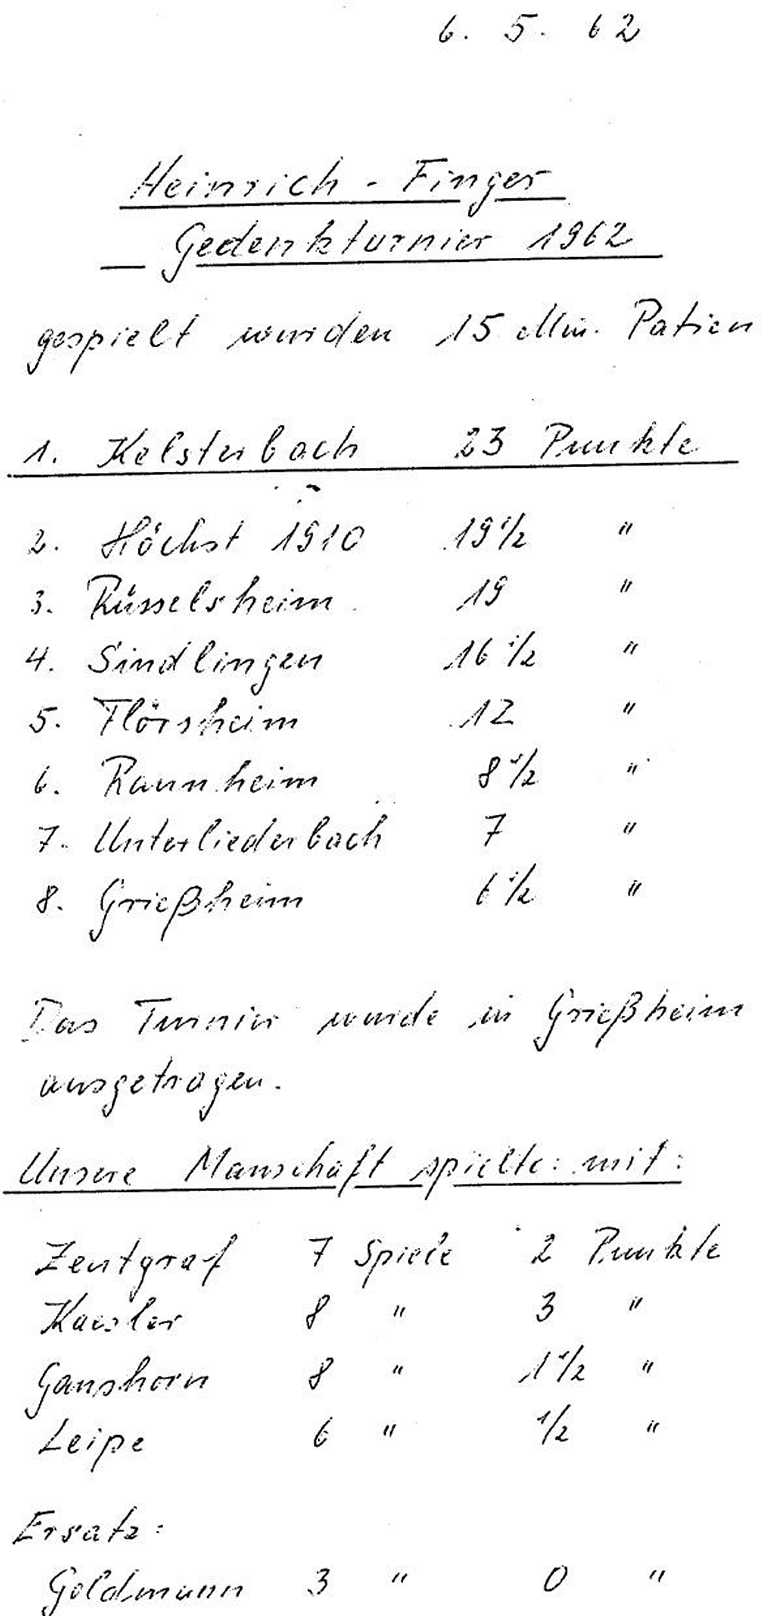 6. 5. 62
Heinrich - Finger
Gedenkturnier 1962
gespielt wurden 15 Min. Patien
1. Kelsterbach 23 Punkte
2. Höchst 1910 19 1/2 "
3. Rüsselsheim 19 "
4. Sindlingen 16 1/2 "
5. Flörsheim 12 "
6. Raunheim 8 1/2 "
7. Unterliederbach 7 "
8. Grießheim 6 1/2 "
Das Turnier wurde in Grießheim
ausgetragen.
Unsere Manschaft spielte: mit:
Zentgraf 7 Spiele 2 Punkte
Kaesler 8 " 3 "
Ganshorn 8 " 1 1/2 "
Leipe 6 " 1/2 "
Ersatz:
Goldmann 3 " 0 "